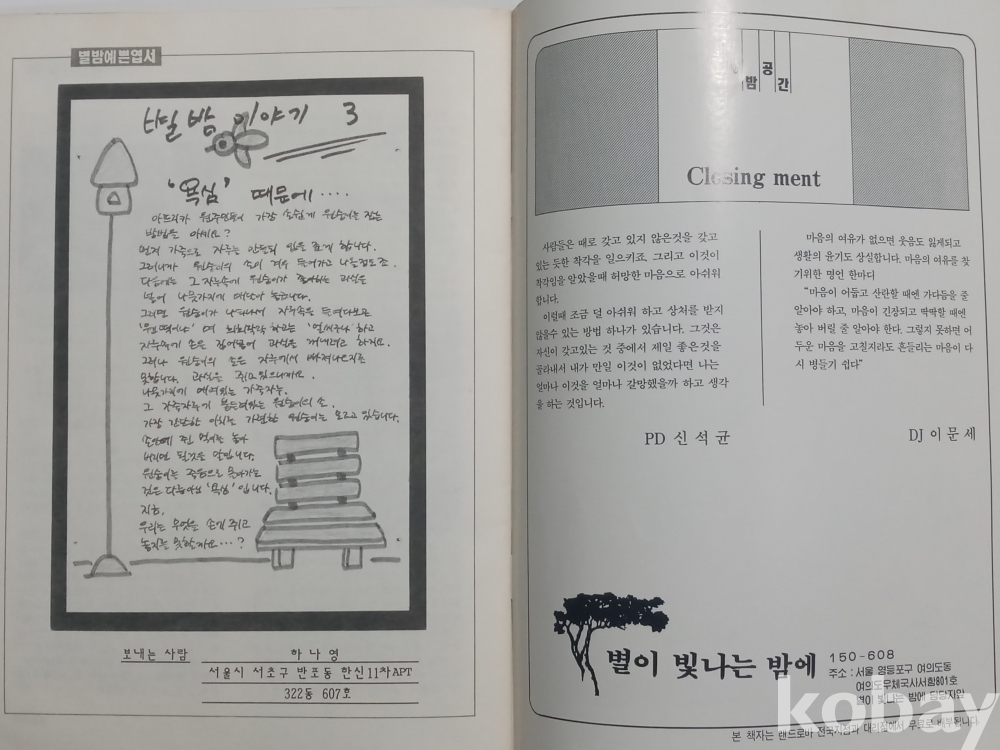 별밤예쁜엽서
별밤 이야기 3
'욕심' 때문에....
아프리카 원주민들이 가장 손쉽게 원숭이를 잡는
방법을 아세요?
먼저 가죽으로 자루를 만든뒤 입을 좁게 합니다.
그러니까 원숭이의 손이 겨우 들어가고 나올정도죠.
다음에는 그 자루속에 원숭이가 좋아하는 과일을
넣어 나뭇가지에 매달아 놓습니다.
그러면 원숭이가 나타나서 자루속을 들여다보고
하고
자루속에 손을 집어넣어 과일을 꺼내려고 하지요.
그러나 원숭이의 손은 자루에서 빠져나오지를
못합니다. 과일을 쥐고있으니까요.
나뭇가지에 매여있는 가죽자루.
그 가죽자루에 붙들려있는 원숭이의 손.
가장 간단한 이치를 가련한 원숭이는 모르고 있습니다.
손안에 쥔 먹이를 놓아
버리면 될것을 말입니다.
원숭이를 죽음으로 몰아가는
것은 다름아닌 '욕심' 입니다.
지금,
우리는 무엇을 손에 쥐고
놓지를 못할까요...?
보내는 사람
하나영
서울시 서초구 반포동 한신11차APT
322동 607호
밤 공간
Closing ment
사람들은 때로 갖고 있지 않은것을 갖고
있는 듯한 착각을 일으키죠. 그리고 이것이
착각임을 알았을때 허망한 마음으로 아쉬워
합니다.
이럴때 조금 덜 아쉬워 하고 상처를 받지
않을수 있는 방법 하나가 있습니다. 그것은
자신이 갖고있는 것 중에서 제일 좋은것을
골라내서 내가 만일 이것이 없었다면 나는
얼마나 이것을 얼마나 갈망했을까 하고 생각
을 하는 것입니다.
PD 신석균
마음의 여유가 없으면 웃음도 잃게되고
생활의 윤기도 상실합니다. 마음의 여유를 찾
기위한 명언 한마디
"마음이 어둡고 산란할 때엔 가다듬을 줄
알아야 하고, 마음이 긴장되고 딱딱할 때엔
놓아 버릴 줄 알아야 한다. 그렇지 못하면 어
두운 마음을 고칠지라도 흔들리는 마음이 다
시 병들기 쉽다"
DJ 이문세
별이 빛나는 밤에
150-608
주소 : 서울 영등포구 여의도동
여의도우체국사서함801호
별이 빛나는 밤에 담당자앞
본 책자는 랜드로바 전국지점과 대리점에서 무료로 배부됩니다.
kobay